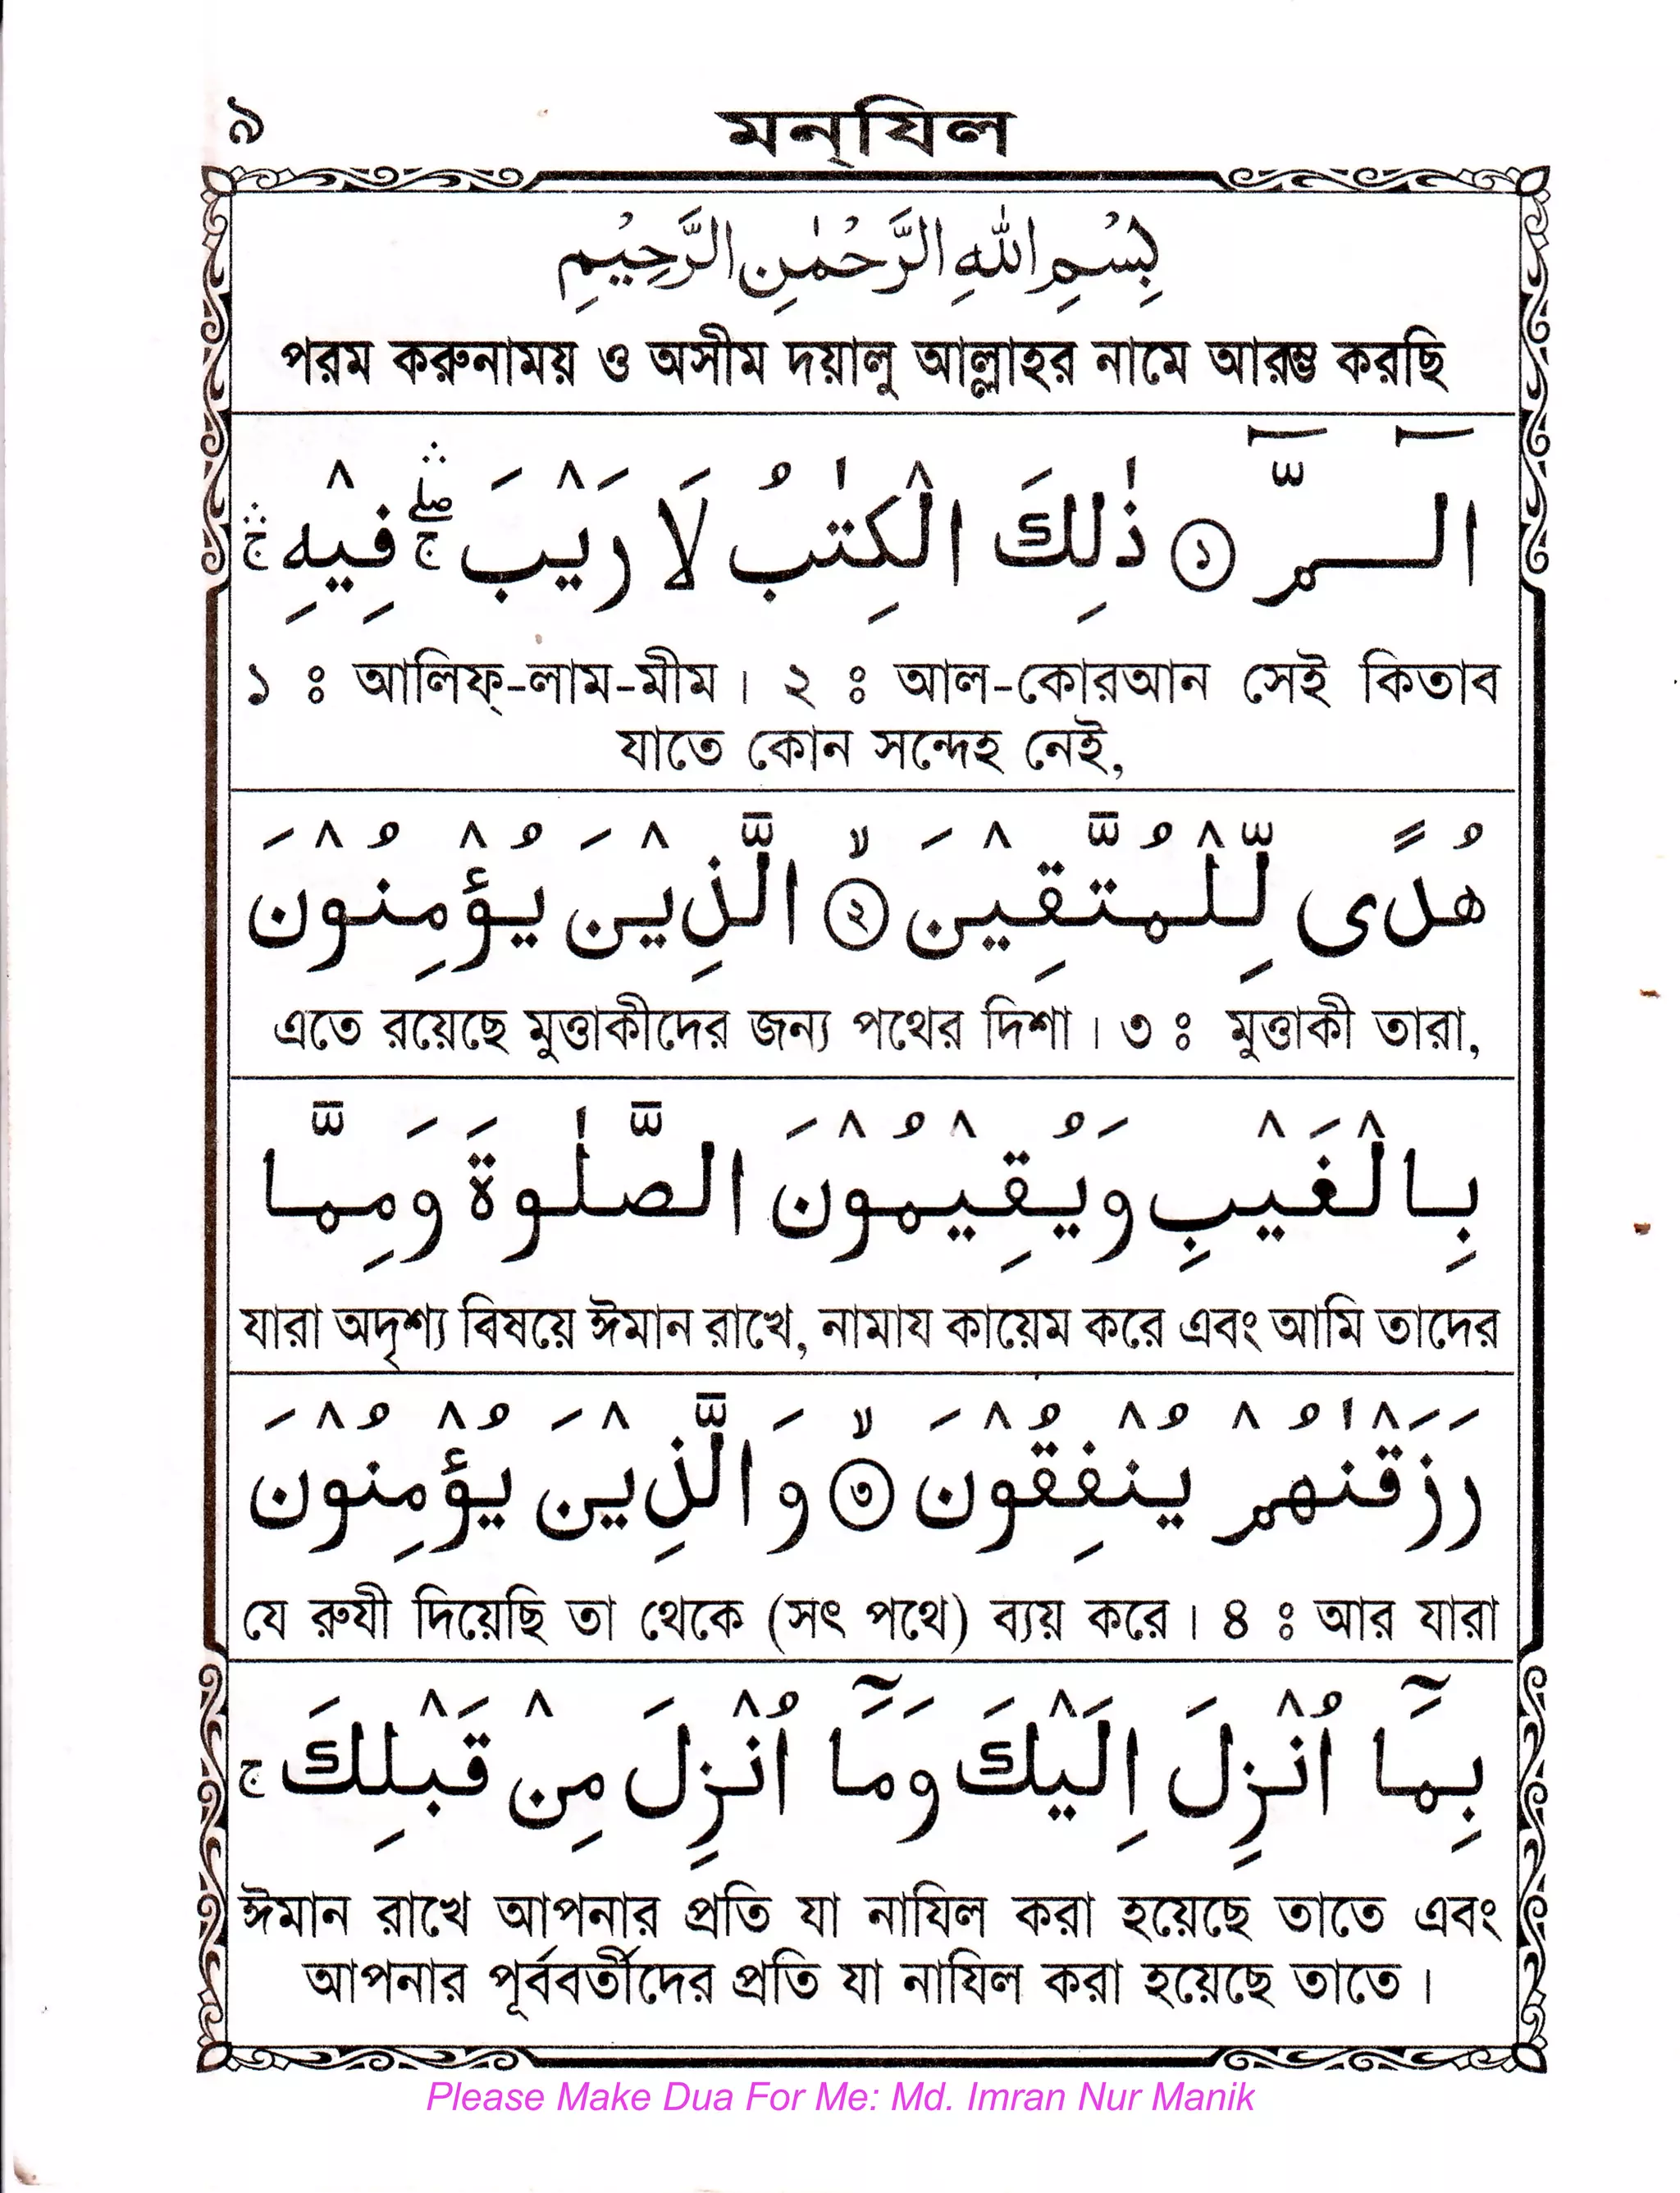 ৯
মন্‌যিল
بِسْمِ اللّٰهِ الرَّحْمٰنِ الرَّحِيْمِ
পরম করুনাময় ও অসীম দয়ালু আল্লাহর নামে আরম্ভ করছি
الٓـمّٓ ① ذٰلِكَ الْكِتٰبُ لَا رَيْبَ ۛۖۚ فِيْهِ ۛۚ
১ ঃ আলিফ্-লাম-মীম। ২ ঃ আল-কোরআন সেই কিতাব
যাতে কোন সন্দেহ নেই,
هُدًى لِّلْمُتَّقِيْنَ ② ۙ الَّذِيْنَ يُؤْمِنُوْنَ
এতে রয়েছে মুত্তাকীদের জন্য পথের দিশা। ৩ ঃ মুত্তাকী তারা,
بِالْغَيْبِ وَيُقِيْمُوْنَ الصَّلٰوةَ وَمِمَّا
যারা অদৃশ্য বিষয়ে ঈমান রাখে, নামায কায়েম করে এবং আমি তাদের
رَزَقْنٰهُمْ يُنْفِقُوْنَ ③ ۙ وَالَّذِيْنَ يُؤْمِنُوْنَ
যে রুযী দিয়েছি তা থেকে (সৎ পথে) ব্যয় করে। ৪ ঃ আর যারা
بِمَآ اُنْزِلَ اِلَيْكَ وَمَآ اُنْزِلَ مِنْ قَبْلِكَ ۚ
ঈমান রাখে আপনার প্রতি যা নাযিল করা হয়েছে তাতে এবং
আপনার পূর্ববর্তীদের প্রতি যা নাযিল করা হয়েছে তাতে।
Please Make Dua For Me: Md. Imran Nur Manik